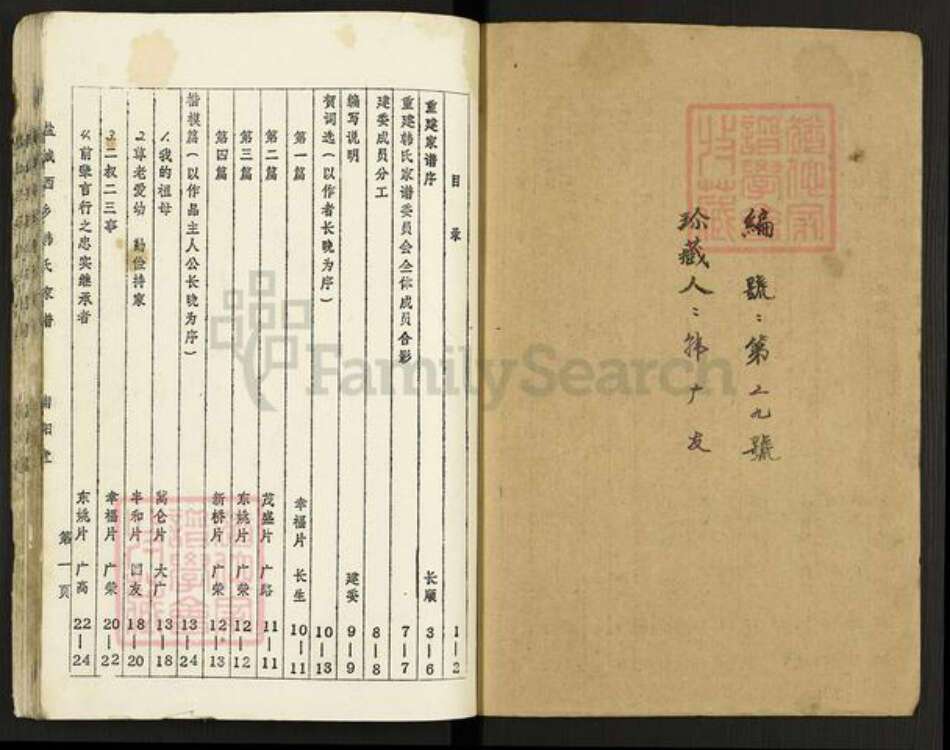 編號：第二九號
珍藏人：韩广友
目录 1—2
重建家谱序 长顺 3—6
重建韩氏家谱委员会全体成员合影 7—7
建委成员分工 8—8
编写说明 建委 9—9
贺词选（以作者长晚为序） 10—13
第一篇 幸福片 长生 10—11
第二篇 茂盛片 广路 11—11
第三篇 东姚片 广荣 12—12
第四篇 新桥片 广荣 12—13
楷模篇（以作品主人公长晚为序） 13—24
1.我的祖母 万仑片 大广 13—18
2.尊老爱幼 勤俭持家 丰和片 国友 18—20
3.二叔二三事 幸福片 广荣 20—22
4.前辈言行之忠实继承者 东姚片 广高 22—24
盐城西乡韩氏家谱 南阳堂 第一页
FamilySearch